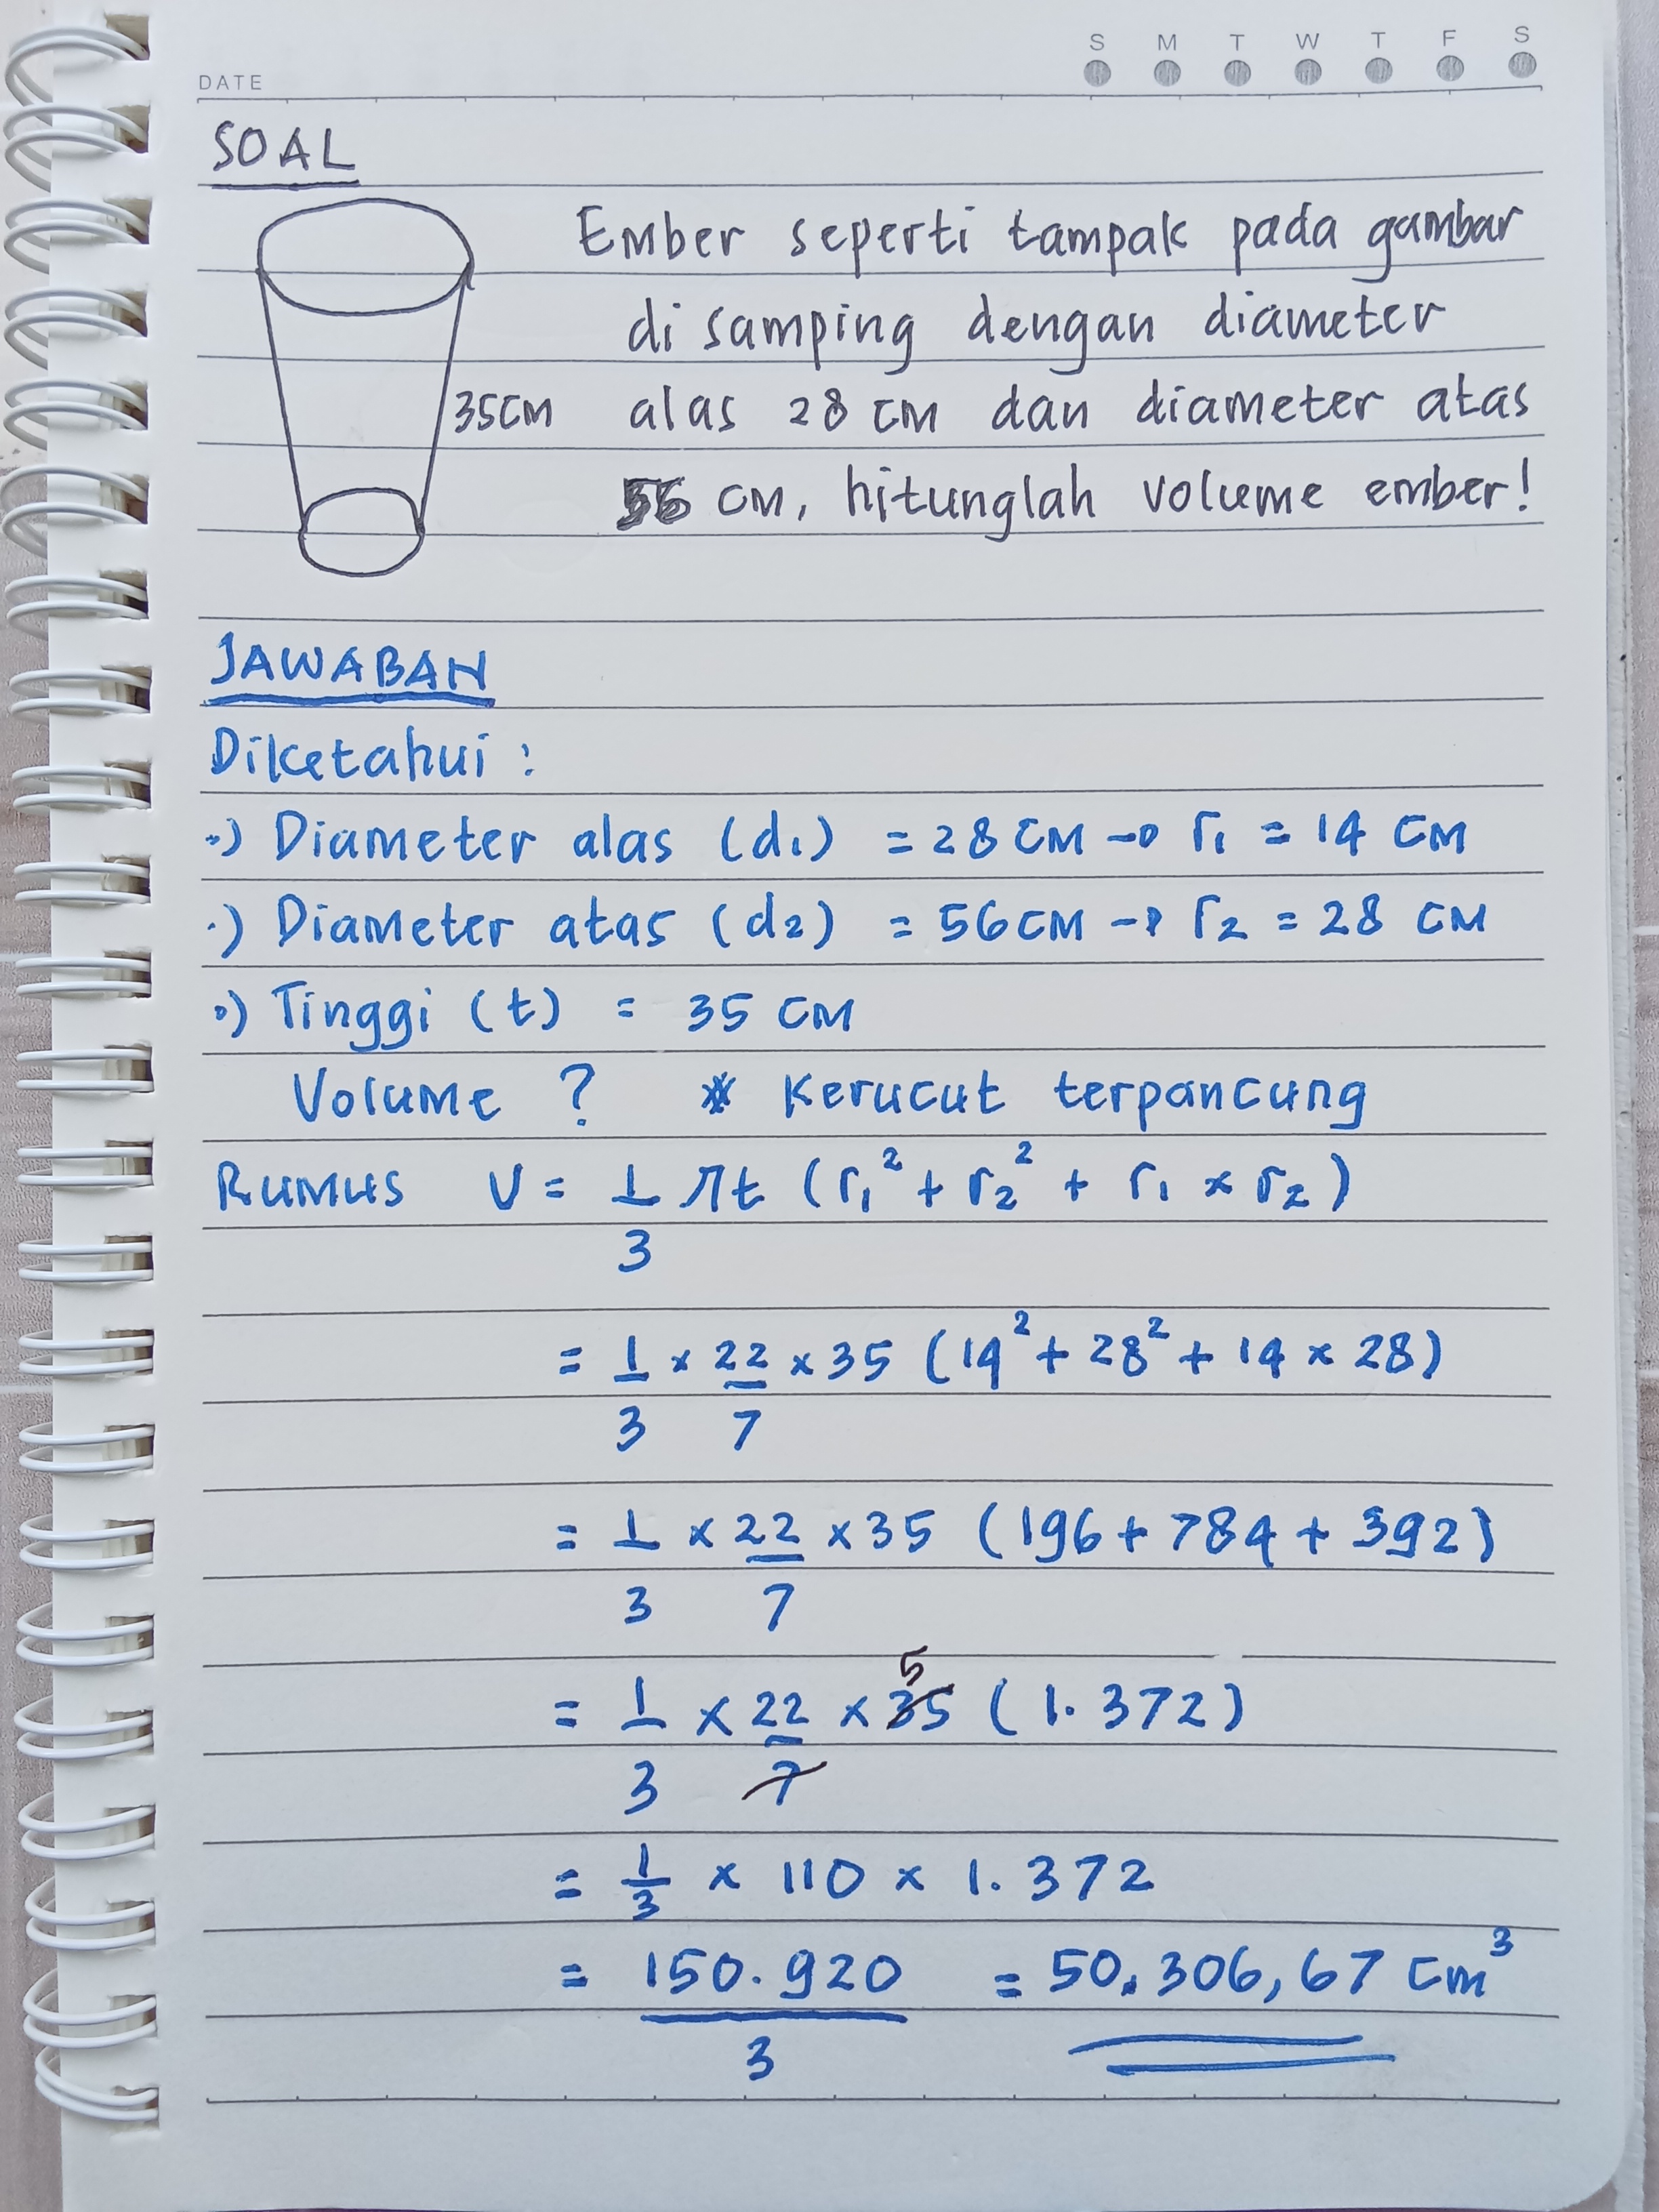 DATE
S M T W T F S
SOAL
Ember seperti tampak pada gambar
di samping dengan diameter
35cm alas 28 cm dan diameter atas
56 cm, hitunglah volume ember!
JAWABAN
Diketahui :
·) Diameter alas (d₁) = 28 cm → r₁ = 14 cm
·) Diameter atas (d₂) = 56 cm → r₂ = 28 cm
·) Tinggi (t) = 35 cm
Volume ? * Kerucut terpancung
Rumus V = 1/3 πt (r₁² + r₂² + r₁ × r₂)
= 1/3 × 22/7 × 35 (14² + 28² + 14 × 28)
= 1/3 × 22/7 × 35 (196 + 784 + 392)
5
= 1/3 × 22/7 × 35 (1.372)
= 1/3 × 110 × 1.372
= 150.920/3 = 50.306,67 cm³